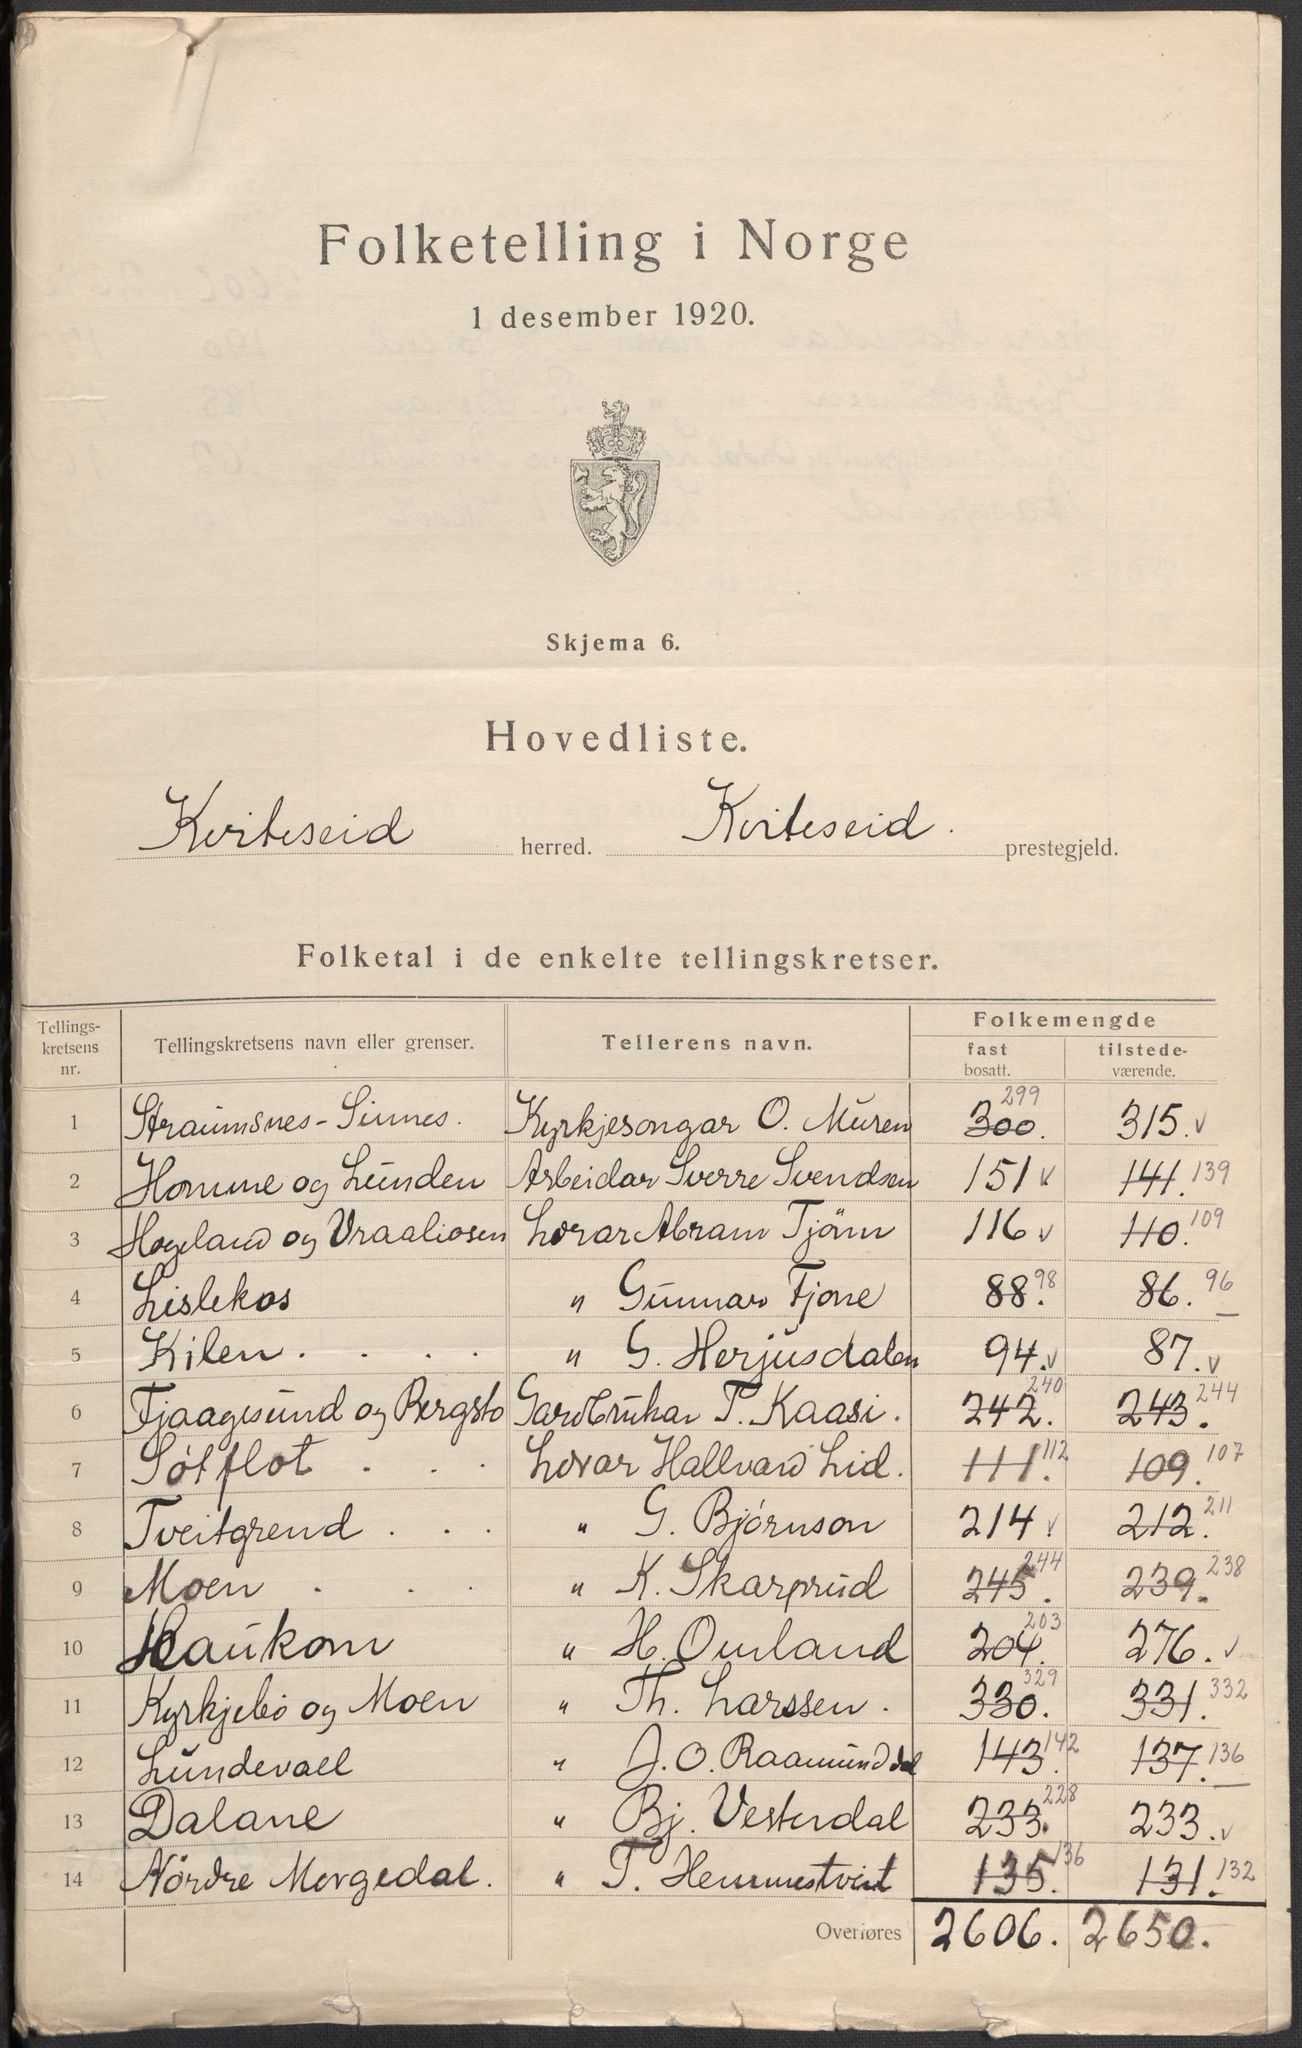 Folketelling i Norge
1 desember 1920.
Skjema 6.
Hovedliste.
Kviteseid herred. Kviteseid. prestegjeld.
Folketal i de enkelte tellingskretser.
Tellings-
kretsens
nr.
Tellingskretsens navn eller grenser.
Tellerens navn.
Folkemengde
fast
bosatt.
tilstede-
værende.
1 Straumsnes-Sinnes. Kyrkjesongar O. Muren 300. 299 315. v
2 Homme og Lunden Arbeidar Sverre Svendsen 151 v 141. 139
3 Hogeland og Vraaliosen Lærar Abram Tjönn 116 v 110. 109
4 Lislekås " Gunnar Fjone 88. 98 86. 96
5 Kilen. . . . . " G. Herjusdalen 94. v 87. v
6 Fjaagesund og Bergsto Gardbrukar T. Kaasi. 242. 240 243. 244
7 Sötflot . . . Lærar Hallvard Lid. 111. 112 109. 107
8 Tveitgrend . . . " G. Bjórnson 214 v 212. 211
9 Moen . . . " K. Skarprud 245. 244 239. 238
10 Haukom " H. Omland 204. 203 276. v
11 Kyrkjebö og Moen " Th. Larssen. 330. 329 331. 332
12 Lundevall " J. O. Raamunddal 143. 142 137. 136
13 Dalane " Bj. Vesterdal 233. 228 233. v
14 Nördre Morgedal. " T. Hemmestveit 135. 136 131. 132
Overføres 2606. 2650.